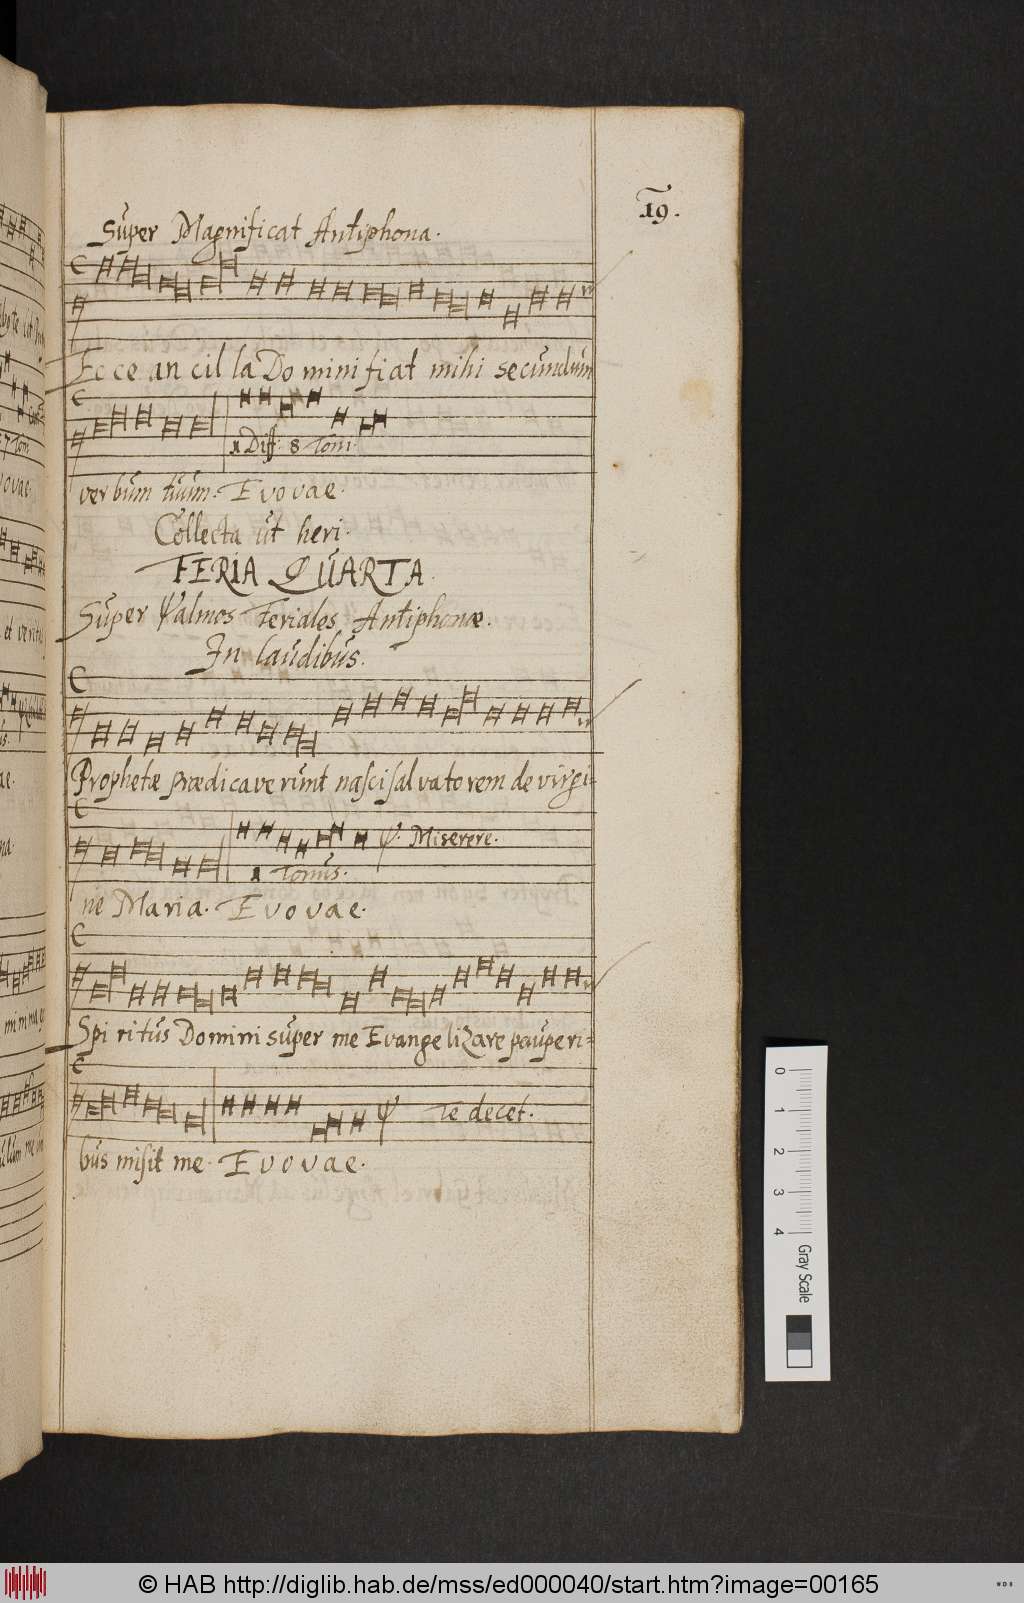 19.
Super Magnificat Antiphona.
Ecce ancilla Domini fiat mihi secundum
1 Diff: 8 Toni.
verbum tuum. Evovae.
Collecta ut heri.
FERIA QUARTA.
Super Psalmos Feriales Antiphonæ.
In laudibus.
Prophetæ prædicaverunt nasci salvatorem de virgi-
Miserere.
1 Tonus.
ne Maria. Evovae.
Spiritus Domini super me Evangelizare pauperi-
Te decet.
bus misit me. Evovae.
0 1 2 3 4 Gray Scale
© HAB http://diglib.hab.de/mss/ed000040/start.htm?image=00165